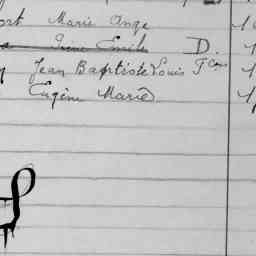 ort Marie Ange
Emile D.
Jean Baptiste Louis Fçois
Eugène Marie